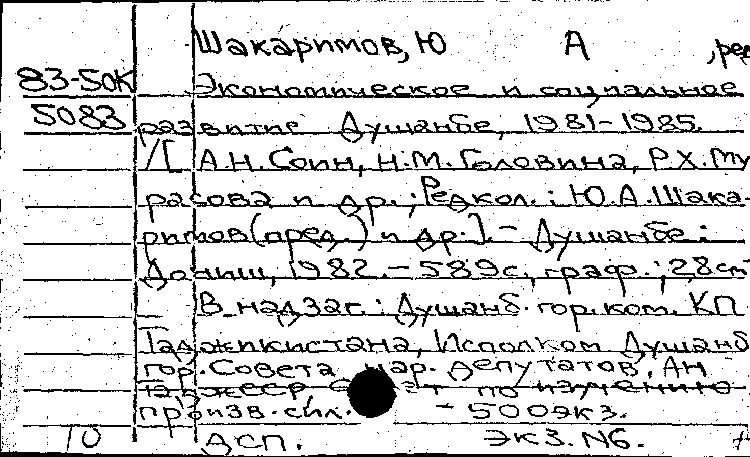 Шакаримов, Ю А , ред
83-50К Экономическое и социальное
5083 развитие Душанбе, 1981-1985.
/[ А.Н. Соин, Н.М. Головина, Р.Х. Му
расова и др.; Редкол.: Ю.А. Шака-
римов (пред.) и др.]. - Душанбе:
Дониш, 1982. - 589с., граф.; 28см
В надзаг.: Душанб. гор. ком. КП
Таджикистана, Исполком Душанб
гор. Совета нар. депутатов, АН
ТаджССР, по изучению
произв. сил. - 500экз.
10 ДСП. Экз. №6.